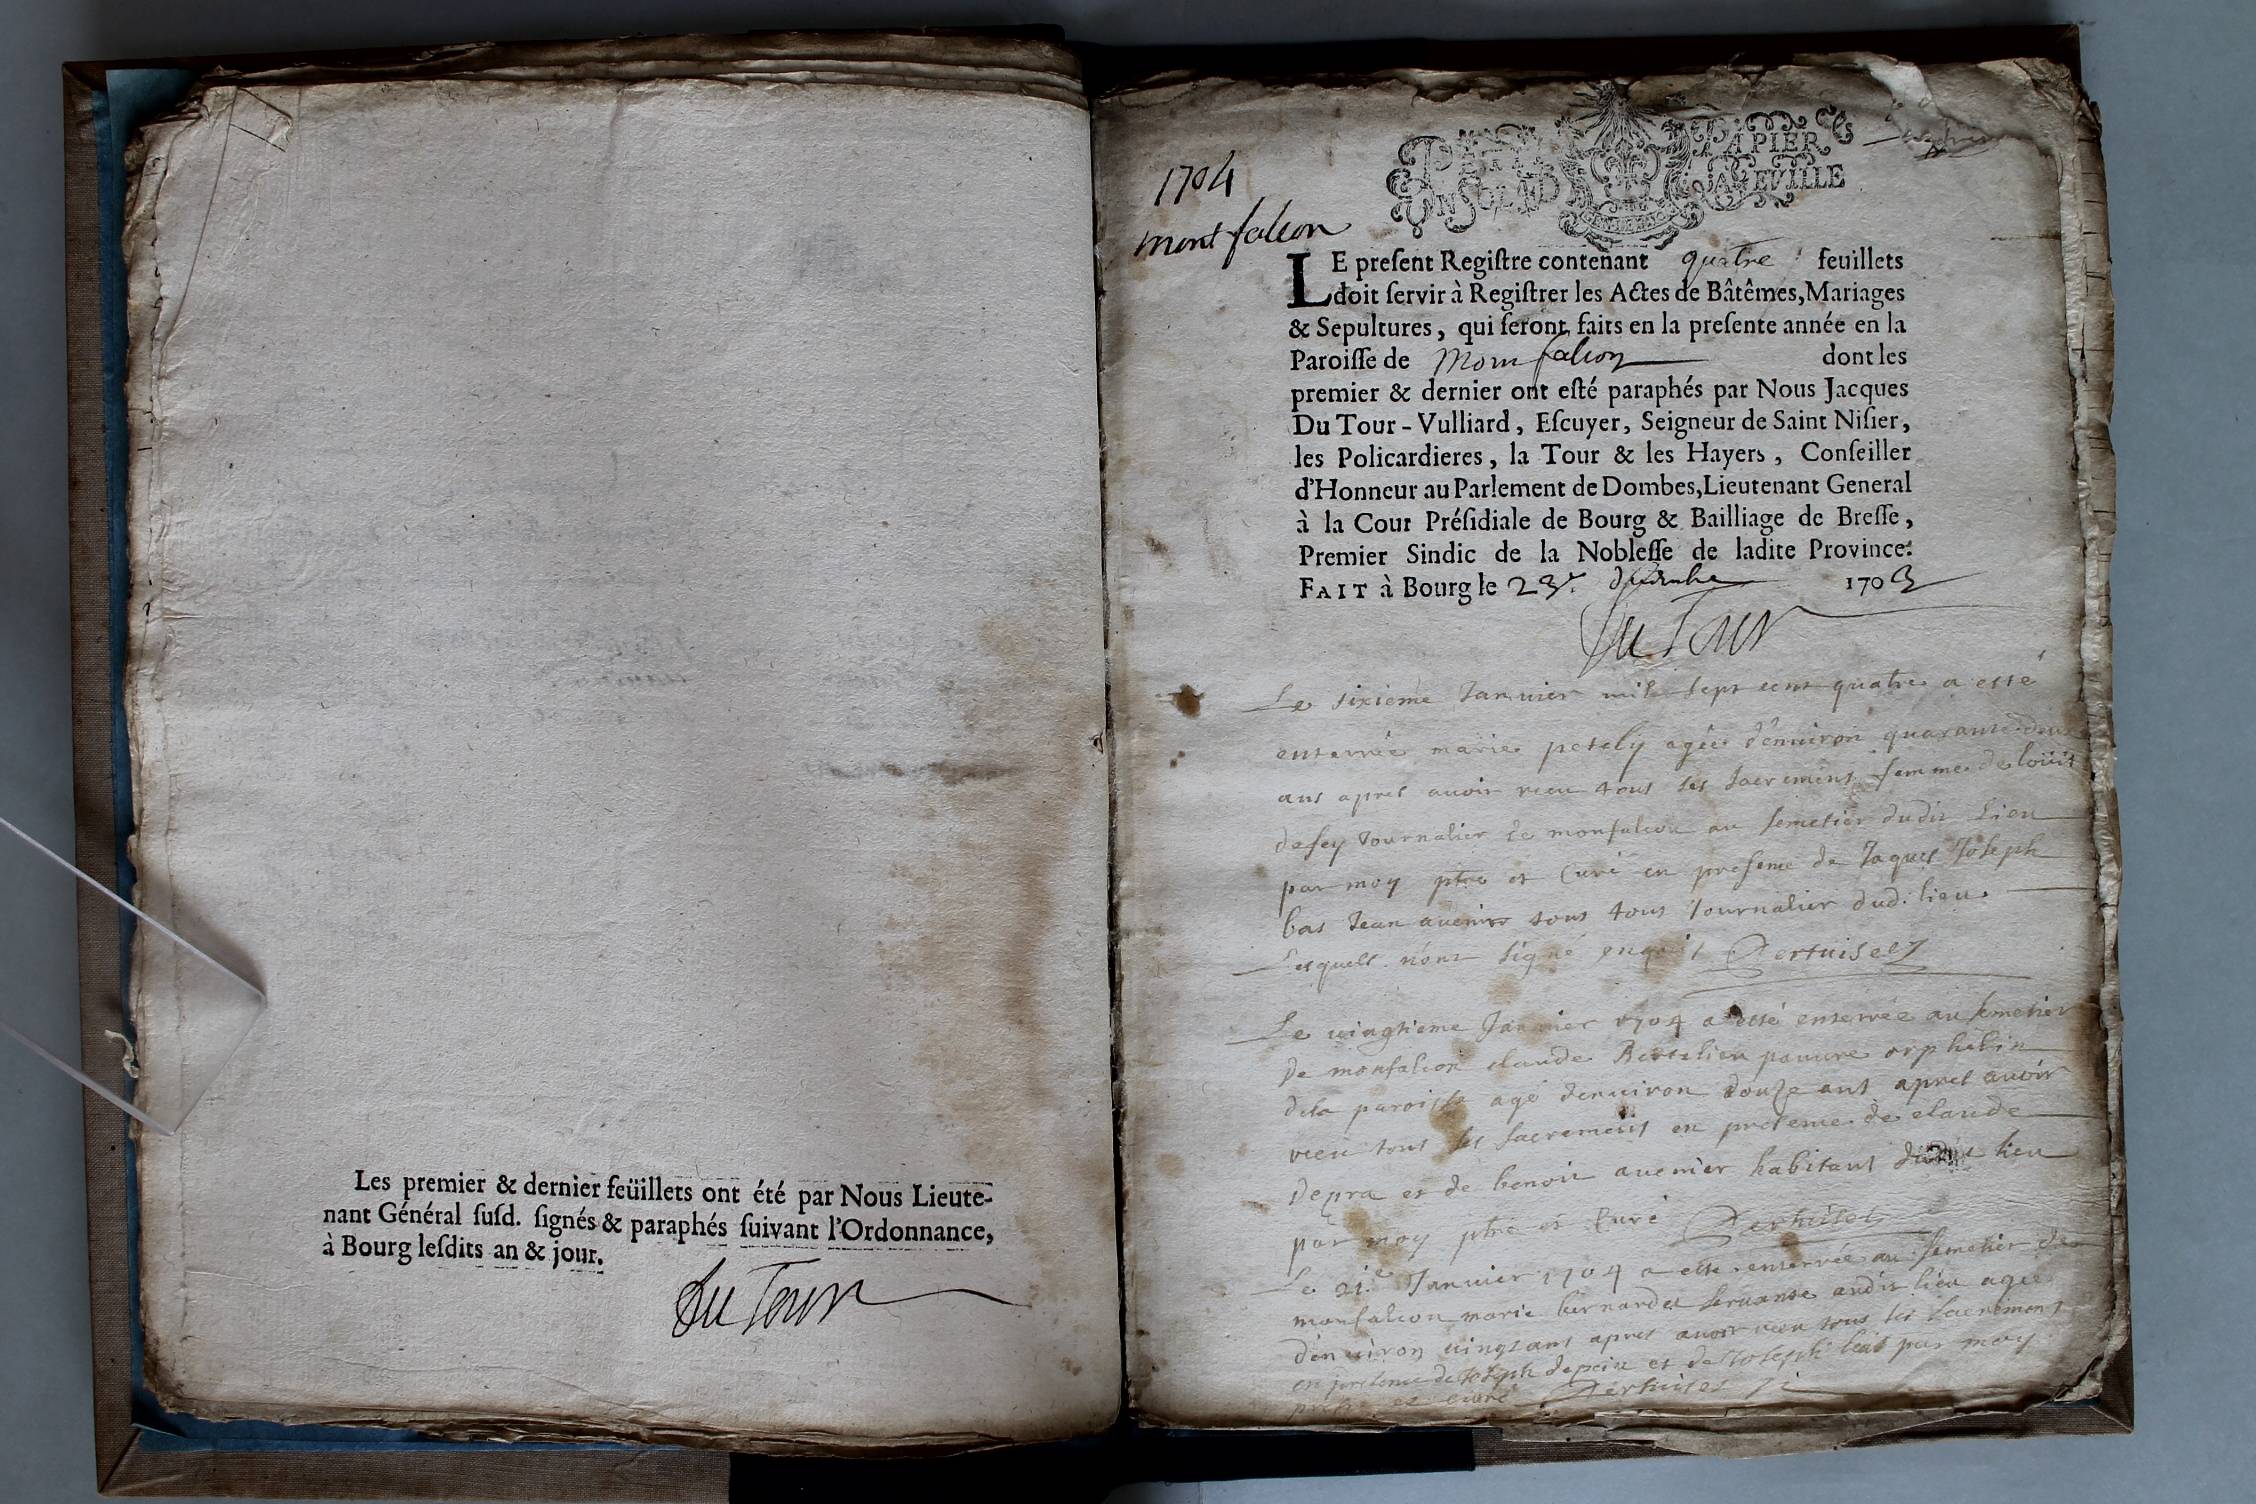 Les premier & dernier feüillets ont été par Nous Lieute-
nant Général ſuſd. ſignés & paraphés ſuivant l'Ordonnance,
à Bourg leſdits an & jour.
Du Tour
1704
montfalcon
PAPIER
LE preſent Regiſtre contenant quatre feuillets
doit ſervir à Regiſtrer les Actes de Bâtêmes, Mariages
& Sepultures, qui ſeront faits en la preſente année en la
Paroiſſe de Monfalcon dont les
premier & dernier ont eſté paraphés par Nous Jacques
Du Tour-Vulliard, Eſcuyer, Seigneur de Saint Niſier,
les Policardieres, la Tour & les Hayers, Conſeiller
d'Honneur au Parlement de Dombes, Lieutenant General
à la Cour Préſidiale de Bourg & Bailliage de Breſſe,
Premier Sindic de la Nobleſſe de ladite Province.
FAIT à Bourg le 23e. decembre 1703
Du Tour
Le sixieme Januier mil sept cent quatre a esté
enterrée marie petely agée d'enuiron quarante deux
ans apres auoir receu tous les sacremens femme de loüis
defey Journalier de monfalcon au semetier dudit Lieu
par moy ptre et Curé en presence de Jaques Joseph
bas Jean auenier tous Journalier dud. lieu
Lesquels n'ont signé enquis Pertuiset
Le uingtieme Januier 1704 a esté enterrée au semetier
De monfalcon claude pauure orphelin
dela paroisse agé denuiron douze ans apres auoir
receu tous les sacremens en presence de claude
Depra et de benoit auenier habitans dudit lieu
par moy ptre et Curé Pertuiset
Le 21e Januier 1704 a esté enterrée au semetier de
monfalcon marie bernardet seruante audit lieu agée
d'enuiron uingt ans apres auoir receu tous les sacremens
en presence de Joseph et de Joseph bas par moy
et curé Pertuiset